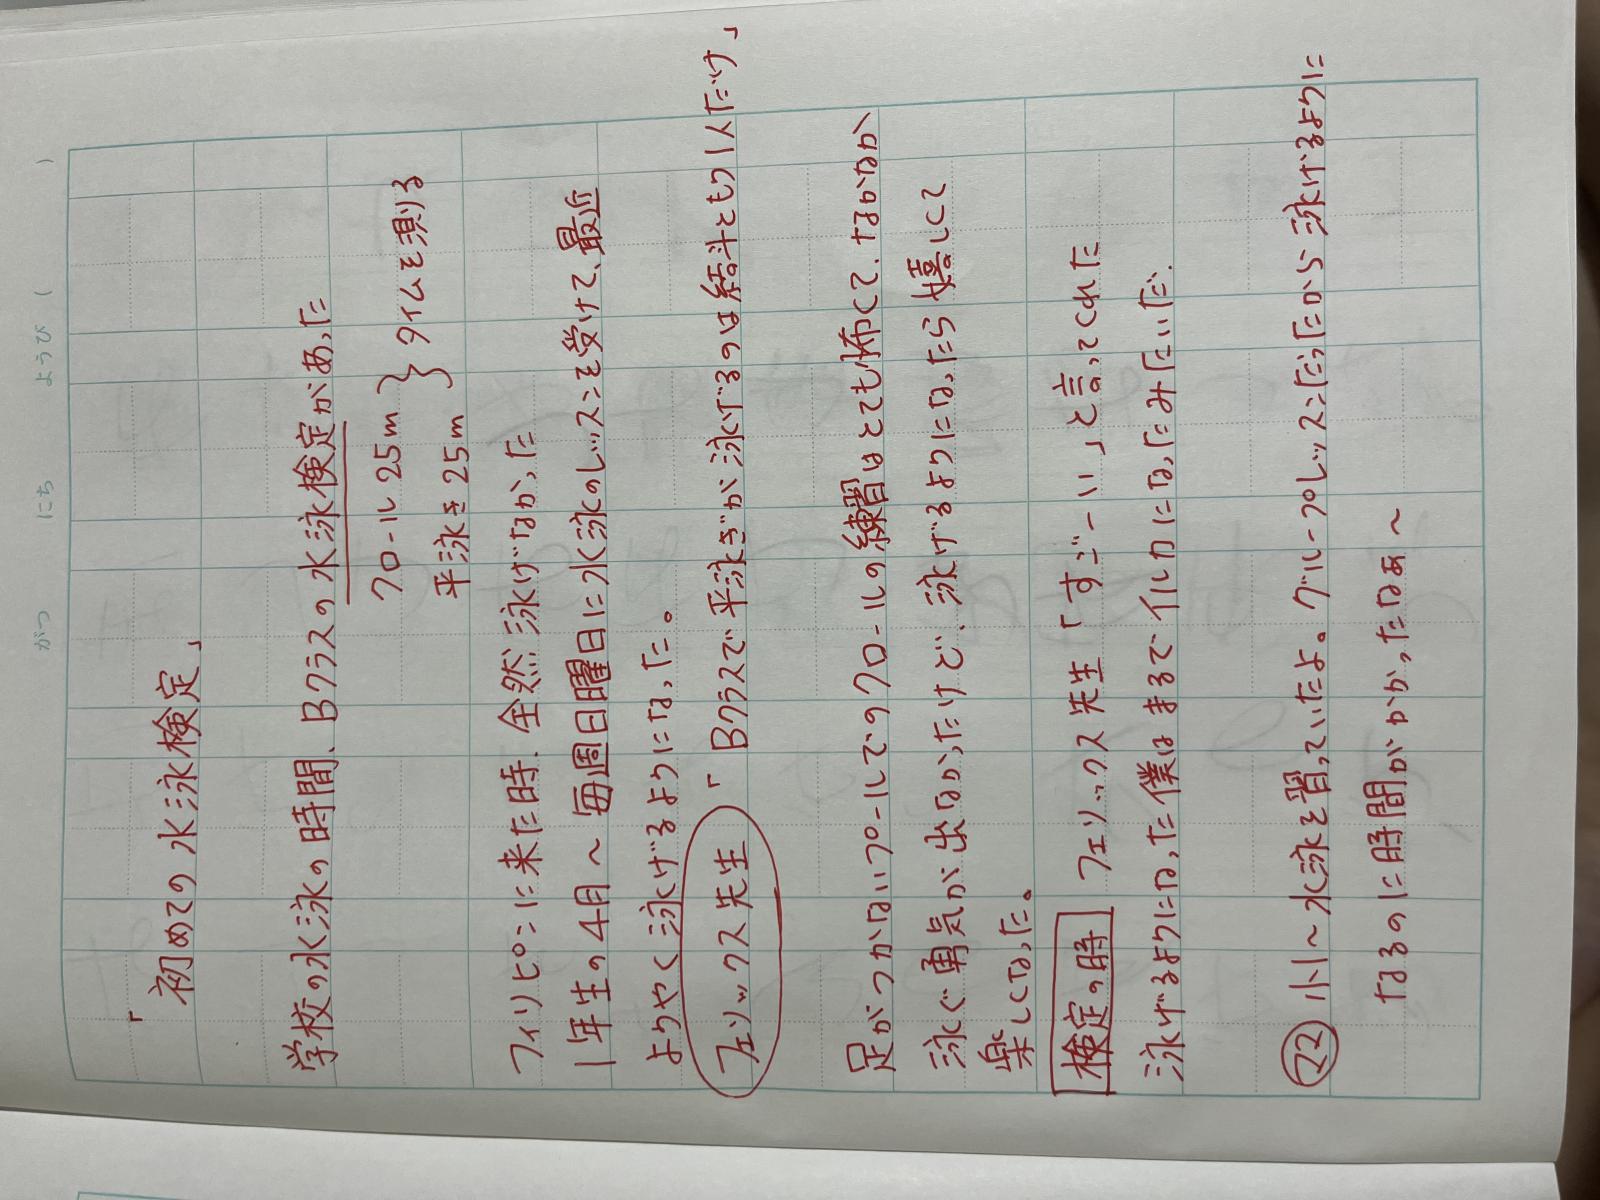 がつ にち ようび ( )
「初めての水泳検定」
学校の水泳の時間、Bクラスの水泳検定があった
クロール25m } タイムを測る
平泳き25m
フィリピンに来た時、全然泳げなかった
1年生の4月〜毎週日曜日に水泳のレッスンを受けて、最近
ようやく泳げるようになった。
フェリックス先生「Bクラスで平泳ぎが泳げるのは結斗ともう1人だけ」
足がつかないプールでのクロールの練習はとても怖くて、なかなか
泳ぐ勇気が出なかったけど、泳げるようになったら嬉しくて
楽しくなった。
検定の時 フェリックス先生「すごーい」と言ってくれた
泳げるようになった僕はまるでイルカになったみたいだ。
㋮㋮ 小1〜水泳を習っていたよ。グループレッスンだったから泳げるように
なるのに時間がかかったなぁ〜